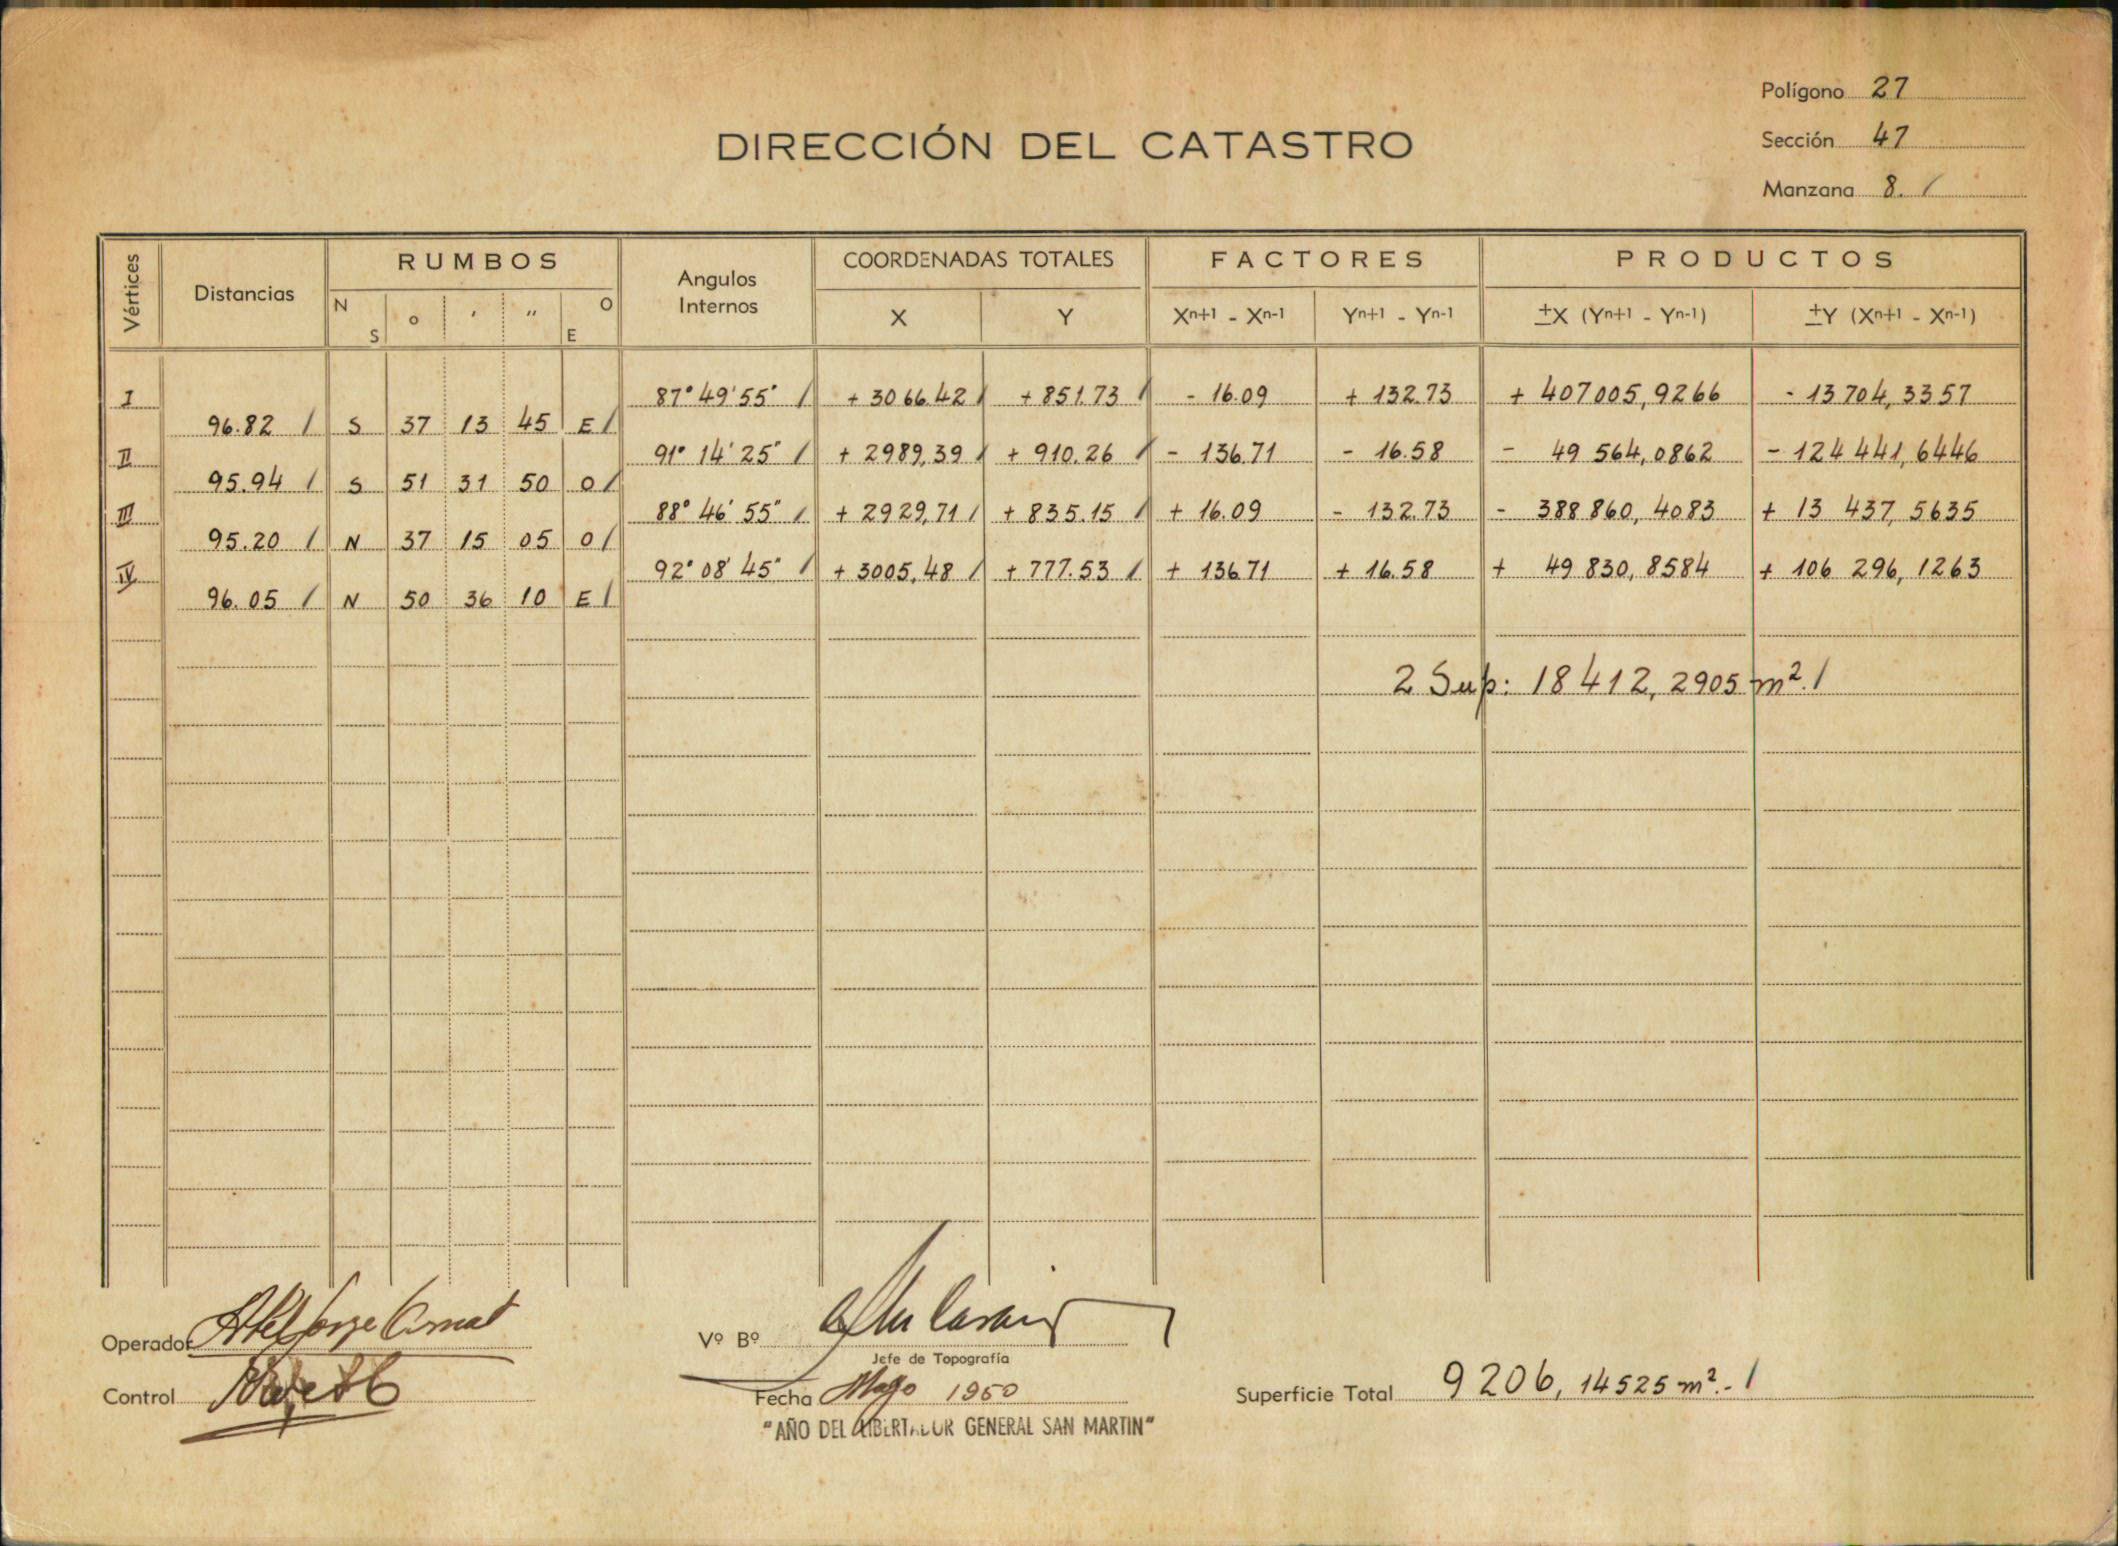 Polígono 27
DIRECCIÓN DEL CATASTRO
Sección 47
Manzana 8. /
Vértices Distancias RUMBOS Angulos Internos COORDENADAS TOTALES FACTORES PRODUCTOS
N S o ' " O E X Y Xn+1 - Xn-1 Yn+1 - Yn-1 ±X (Yn+1 - Yn-1) ±Y (Xn+1 - Xn-1)
I 87° 49' 55" / + 3066.42 / + 851.73 / - 16.09 + 132.73 + 407005,9266 - 13704,3357
96.82 / S 37 13 45 E /
II 91° 14' 25" / + 2989,39 / + 910.26 / - 136.71 - 16.58 - 49 564,0862 - 124 441,6446
95.94 / S 51 31 50 O /
III 88° 46' 55" / + 2929,71 / + 835.15 / + 16.09 - 132.73 - 388 860,4083 + 13 437,5635
95.20 / N 37 15 05 O /
IV 92° 08' 45" / + 3005,48 / + 777.53 / + 136.71 + 16.58 + 49 830,8584 + 106 296,1263
96.05 / N 50 36 10 E /
2 Sup: 18412,2905 m². /
Operador
Vº Bº
Jefe de Topografía
Control
Fecha Mayo 1950
Superficie Total 9206,14525 m².- /
"AÑO DEL LIBERTADOR GENERAL SAN MARTIN"